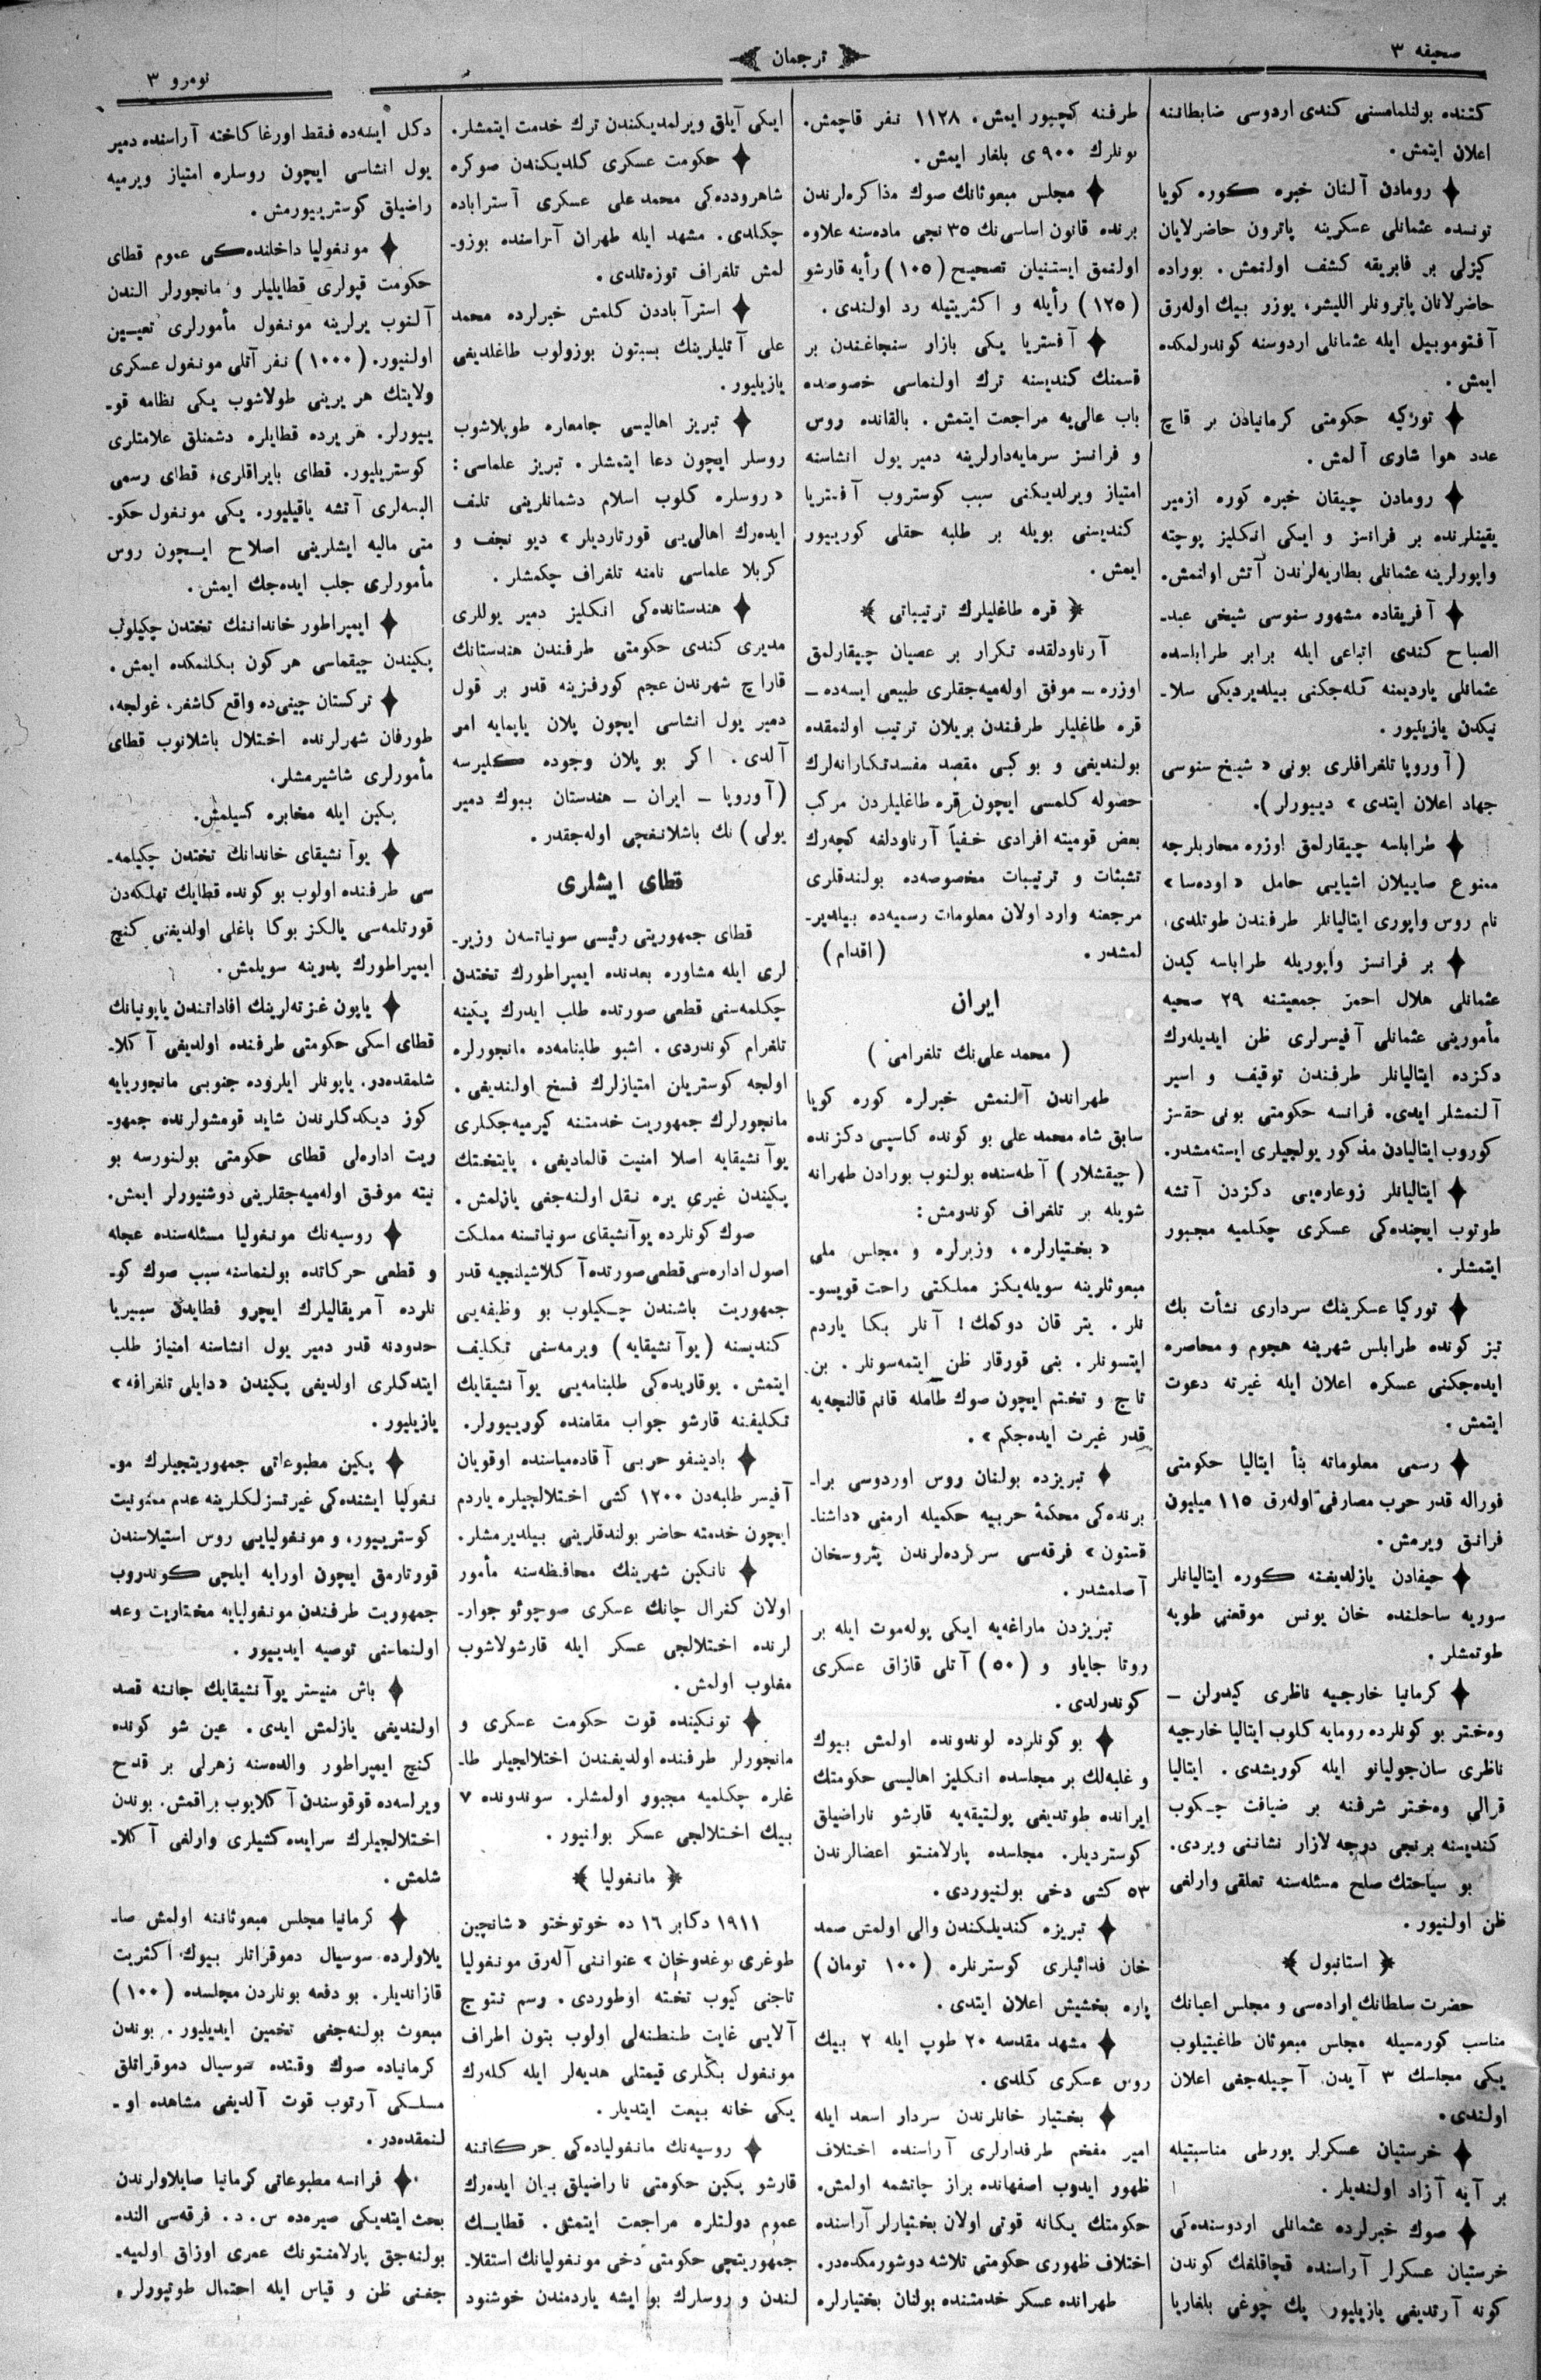 صحیفه ۳
ترجمان
نومرو ۳
كتنده بولنلمامسنی كندی اردوسی ضابطاننه
اعلان ایتمش.
رومادن آلنان خبره كوره كویا
تونسده عثمانلی عسكرینه پاترون حاضرلایان
كیزلی بر فابریقه كشف اولنمش. بوراده
حاضرلانان پاترونلر اللیشر، یوزر بیك اوله‌رق
آفتوموبیل ایله عثمانلی اردوسنه كوندرلمكده
ایمش.
توركیه حكومتی كرمانیادن بر قاچ
عدد هوا شاری آلمش.
رومادن چیقان خبره كوره ازمیر
یقینلرنده بر فرانسز و ایكی انكلیز پوچته
واپورلرینه عثمانلی بطاریه‌لرندن آتش اولنمش.
آفریقاده مشهور سنوسی شیخی عبد-
الصباح كندی اتباعی ایله برابر طرابلسده
عثمانلی یاردیمنه كله‌جكنی بیلدیردیكی سلا-
نیكدن یازیلیور.
(آوروپا تلغرافلری بونی « شیخ سنوسی
جهاد اعلان ایتدی » دییورلر).
طرابلسه چیقارلمق اوزره محاربلرجه
ممنوع صاییلان اشیایی حامل « اوده‌سا »
نام روس واپوری ایتالیانلر طرفندن طوتلدی.
بر فرانسز واپوریله طرابلسه كیدن
عثمانلی هلال احمر جمعیتنه ۲۹ صحیه
مأمورینی عثمانلی آفیسرلری ظن ایدیله‌رك
دكزده ایتالیانلر طرفندن توقیف و اسیر
آلنمشلر ایدی. فرانسه حكومتی بونی حقسز
كوروب ایتالیادن مذكور یولجیلری ایسته‌مشدر.
ایتالیانلر زوعاره‌یی دكزدن آتشه
طوتوب ایچنده‌كی عسكری چكلمیه مجبور
ایتمشلر.
توركیا عسكرینك سرداری نشأت بك
تیز كونده طرابلس شهرینه هجوم و محاصره
ایده‌جكنی عسكره اعلان ایله غیرته دعوت
ایتمش.
رسمی معلوماته بنأ ایتالیا حكومتی
فوراله قدر حرب مصارفی اوله‌رق ۱۱۵ میلیون
فرانق ویرمش.
حیفادن یازلدیغنه كوره ایتالیانلر
سوریه ساحلنده خان یونس موقعنی طوپه
طوتمشلر.
كرمانیا خارجیه ناظری كیدرلن –
وه‌ختر بو كونلرده رومایه كلوب ایتالیا خارجیه
ناظری سان‌جولیانو ایله كوریشدی. ایتالیا
قرالی وه‌ختر شرفنه بر ضیافت چكوب
كندیسنه برنجی درجه لازار نشاننی ویردی.
بو سیاحتك صلح مسئله‌سنه تعلقی وارلغی
ظن اولنیور.
﴿ استانبول ﴾
حضرت سلطانك اراده‌سی و مجلس اعیانك
مناسب كورمسیله مجلس مبعوثان طاغیتیلوب
یكی مجلسك ۳ آیدن آچیله‌جغی اعلان
اولندی.
خرستیان عسكرلر یورطی مناسبتیله
بر آیه آزاد اولندیلر.
صوك خبرلرده عثمانلی اردوسنده‌كی
خرستیان عسكرلر آراسنده قچاقلغك كوندن
كونه آرتدیغی یازیلیور. پك چوغی بلغاریا
طرفنه كچیور ایمش. ۱۱۲۸ نفر قاچمش.
بونلرك ۹۰۰ ی بلغار ایمش.
مجلس مبعوثانك صوك مذاكره‌لرندن
برنده قانون اساسی‌نك ۳۵ نجی ماده‌سنه علاوه
اولنمق ایستنیلن تصحیح (۱۰۵) رأیه قارشو
(۱۲۵) رأیله و اكثریتیله رد اولندی.
آفستریا یكی بازار سنجاغندن بر
قسمنك كندیسنه ترك اولنماسی خصوصده
باب عالی‌یه مراجعت ایتمش. بالقانده روس
و فرانسز سرمایه‌دارلرینه دمیر یول انشاسنه
امتیاز ویرلدیكنی سبب كوستروب آفستریا
كندیسنی بویله بر طلبه حقلی كورییور
ایمش.
﴿ قره طاغلیلرك ترتیباتی ﴾
آرناودلقده تكرار بر عصیان چیقارلمق
اوزره – موفق اوله‌میه‌جقلری طبیعی ایسه‌ده –
قره طاغلیلر طرفندن بر پلان ترتیب اولنمقده
بولندیغی و بو كبی مقصد مفسدتكارانه‌لرك
حصوله كلمسی ایچون قره طاغلیلردن مركب
بعض قومیته افرادی خفیاً آرناودلغه كچه‌رك
تشبثات و ترتیبات مخصوصه‌ده بولندقلری
مرجعنه وارد اولان معلومات رسمیه‌ده بیلدیر-
لمشدر. (اقدام)
ایران
( محمد علی‌نك تلغرامی )
طهراندن آلنمش خبرلره كوره كویا
سابق شاه محمد علی بو كونده كاسپی دكزنده
(چیقشلار) آطه‌سنده بولنوب بورادن طهرانه
شویله بر تلغراف كوندرمش:
« بختیارلره، وزیرلره و مجلس ملی
مبعوثلرینه سویله‌یكز مملكتی راحت قویسو-
نلر. یتر قان دوكمك! آنلر بكا یاردم
ایتسونلر. بنی قورقار ظن ایتمه‌سونلر. بن
تاج و تختم ایچون صوك طامله قانم قالنجه‌یه
قدر غیرت ایده‌جكم ».
تبریزده بولنان روس اوردوسی برا-
برنده‌كی محكمهٔ حربیه حكمیله ارمنی «داشنا-
قستون» فرقه‌سی سركرده‌لرندن پتروسخان
آصلمشدر.
تبریزدن ماراغه‌یه ایكی پوله‌موت ایله بر
روتا جایاو و (۵۰) آتلی قازاق عسكری
كوندرلدی.
بو كونلرده لوندونده اولمش بیوك
و غلبه‌لك بر مجلسده انكلیز اهالیسی حكومتك
ایرانده طوتدیغی پولتیقه‌یه قارشو ناراضیلق
كوستردیلر. مجلسده پارلامنتو اعضالرندن
۵۳ كشی دخی بولنیوردی.
تبریزه كندیلكندن والی اولمش صمد
خان فدائیلری كوسترنلره (۱۰۰ تومان)
پاره بخشیش اعلان ایتدی.
مشهد مقدسه ۲۰ طوپ ایله ۲ بیك
روس عسكری كلدی.
بختیار خانلرندن سردار اسعد ایله
امیر مفخم طرفدارلری آراسنده اختلاف
ظهور ایدوب اصفهانده براز چاتشمه اولمش.
حكومتك یكانه قوتی اولان بختیارلر آراسنده
اختلاف ظهوری حكومتی تلاشه دوشورمكده‌در.
طهرانده عسكر خدمتنده بولنان بختیارلره
ایكی آیلق ویرلمدیكندن ترك خدمت ایتمشلر.
حكومت عسكری كلدیكندن صوكره
شاهرودده‌كی محمد علی عسكری آستراباده
چكلدی. مشهد ایله طهران آراسنده بوزو-
لمش تلغراف توزه‌تلدی.
استرآباددن كلمش خبرلرده محمد
علی آتلیلرینك بسبتون بوزولوب طاغلدیغی
یازیلیور.
تبریز اهالیسی جامعلره طوپلاشوب
روسلر ایچون دعا ایتمشلر. تبریز علماسی:
« روسلره كلوب اسلام دشمانلرینی تلف
ایده‌رك اهالی‌یی قورتاردیلر » دیو نجف و
كربلا علماسی نامنه تلغراف چكمشلر.
هندستانده‌كی انكلیز دمیر یوللری
مدیری كندی حكومتی طرفندن هندستانك
قاراچ شهرندن عجم كورفزینه قدر بر قول
دمیر یول انشاسی ایچون پلان یاپمایه امر
آلدی. اكر بو پلان وجوده كلیرسه
(آوروپا – ایران – هندستان بیوك دمیر
یولی) نك باشلانغجی اوله‌جقدر.
قطای ایشلری
قطای جمهوریتی رئیسی سونیاتسه‌ن وزیر-
لری ایله مشاوره بعدنده ایمپراطورك تختدن
چكلمه‌سنی قطعی صورتده طلب ایدرك پكینه
تلغرام كوندردی. اشبو طلبنامه‌ده مانجورلره
اولجه كوستریلن امتیازلرك فسخ اولندیغی،
مانجورلرك جمهوریت خدمتنه كیرمیه‌جكلری
یوآنشیقایه اصلا امنیت قالمادیغی، پایتختك
پكیندن غیری یره نقل اولنه‌جغی یازلمش.
صوك كونلرده یوآنشیقای سونیاتسنه مملكت
اصول اداره‌سی قطعی صورتده آكلاشیلنجیه قدر
جمهوریت باشندن چكیلوب بو وظیفه‌یی
كندیسنه (یوآنشیقایه) ویرمه‌سنی تكلیف
ایتمش. یوقاریده‌كی طلبنامه‌یی یوآنشیقایك
تكلیفنه قارشو جواب مقامنده كورییورلر.
بادینغو حربی آقاده‌میاسنده اوقویان
آفیسر طلبه‌دن ۱۲۰۰ كشی اختلالجیلره یاردم
ایچون خدمته حاضر بولندقلرینی بیلدیرمشلر.
نانكین شهرینك محافظه‌سنه مأمور
اولان كنرال چانك عسكری صوچوئو جوار-
لرنده اختلالجی عسكر ایله قارشولاشوب
مغلوب اولمش.
تونكینده قوت حكومت عسكری و
مانجورلر طرفنده اولدیغندن اختلالجیلر طا-
غلره چكلمیه مجبور اولمشلر. سوندونده ۷
بیك اختلالجی عسكر بولنیور.
﴿ مانغولیا ﴾
۱۹۱۱ دكابر ۱۶ ده خوتوختو « شانچین
طوغری بوغدوخان » عنواننی آله‌رق مونغولیا
تاجنی كیوب تخته اوطوردی. رسم تتوج
آلایی غایت طنطنه‌لی اولوب بتون اطراف
مونغول بكلری قیمتلی هدیه‌لر ایله كله‌رك
یكی خانه بیعت ایتدیلر.
روسیه‌نك مانغولیاده‌كی حركاتنه
قارشو پكین حكومتی ناراضیلق بیان ایده‌رك
عموم دولتلره مراجعت ایتمش. قطایك
جمهوریتچی حكومتی دخی مونغولیانك استقلا-
لندن و روسلرك بو ایشه یاردمندن خوشنود
دكل ایسه‌ده فقط اورغا كاخته آراسنده دمیر
یول انشاسی ایچون روسلره امتیاز ویرمیه
راضیلق كوسترییورمش.
مونغولیا داخلنده‌كی عموم قطای
حكومت قپولری قطایلیلر و مانجورلر الندن
آلنوب یرلرینه مونغول مأمورلری تعیین
اولنیور. (۱۰۰۰) نفر آتلی مونغول عسكری
ولایتك هر یرینی طولاشوب یكی نظامه قو-
ییورلر. هر یرده قطایلره دشمنلق علامتلری
كوستریلیور. قطای بایراقلری، قطای رسمی
البسه‌لری آتشه یاقیلیور. یكی مونغول حكو-
متی مالیه ایشلرینی اصلاح ایچون روس
مأمورلری جلب ایده‌جك ایمش.
ایمپراطور خانداننك تختدن چكیلوب
پكیندن چیقماسی هر كون بكلنمكده ایمش.
تركستان چینی‌ده واقع كاشغر، غولجه،
طورفان شهرلرنده اختلال باشلانوب قطای
مأمورلری شاشیرمشلر.
پكین ایله مخابره كسیلمش.
یوآنشیقای خاندانك تختدن چكیلمه-
سی طرفنده اولوب بو كونده قطایك تهلكه‌دن
قورتلمه‌سی یالكز بوكا باغلی اولدیغنی كنچ
ایمپراطورك پدرینه سویلمش.
یاپون غزته‌لرینك افاداتندن یاپونیانك
قطای اسكی حكومتی طرفنده اولدیغی آكلا-
شلمقده‌در. یاپونلر ایلروده جنوبی مانجوریایه
كوز دیكدكلرندن شاید قومشولرنده جمهو-
ریت اداره‌لی قطای حكومتی بولنورسه بو
نیته موفق اوله‌میه‌جقلرینی دوشنیورلر ایمش.
روسیه‌نك مونغولیا مسئله‌سنده عجله
و قطعی حركاتده بولنماسنه سبب صوك كو-
نلرده آمریقالیلرك ایچرو قطایدن سیبیریا
حدودنه قدر دمیر یول انشاسنه امتیاز طلب
ایتدكلری اولدیغی پكیندن «دایلی تلغرافه»
یازیلیور.
پكین مطبوعاتی جمهوریتچیلرك مو-
نغولیا ایشنده‌كی غیرتسزلكلرینه عدم ممنونیت
كوسترییور، و مونغولیایی روس استیلاسندن
قورتارمق ایچون اورایه ایلچی كوندروب
جمهوریت طرفندن مونغولیایه مختاریت وعد
اولنماسنی توصیه ایدییور.
باش منیستر یوآنشیقایك جاننه قصد
اولندیغی یازلمش ایدی. عین شو كونده
كنچ ایمپراطور والده‌سنه زهرلی بر قدح
ویرلسه‌ده قوقوسندن آكلایوب براقمش. بوندن
اختلالجیلرك سرایده كشیلری وارلغی آكلا-
شلمش.
كرمانیا مجلس مبعوثاننه اولمش صا-
یلاولرده سوسیال دموقراتلر بیوك اكثریت
قازاندیلر. بو دفعه بونلردن مجلسده (۱۰۰)
مبعوث بولنه‌جغی تخمین ایدیلیور. بوندن
كرمانیاده صوك وقتده سوسیال دموقراتلق
مسلكی آرتوب قوت آلدیغی مشاهده او-
لنمقده‌در.
فرانسه مطبوعاتی كرمانیا صایلاولرندن
بحث ایتدیكی صیره‌ده س. د. فرقه‌سی النده
بولنه‌جق پارلامنتونك عمری اوزاق اولمیه-
جغنی ظن و قیاس ایله احتمال طوتیورلر.